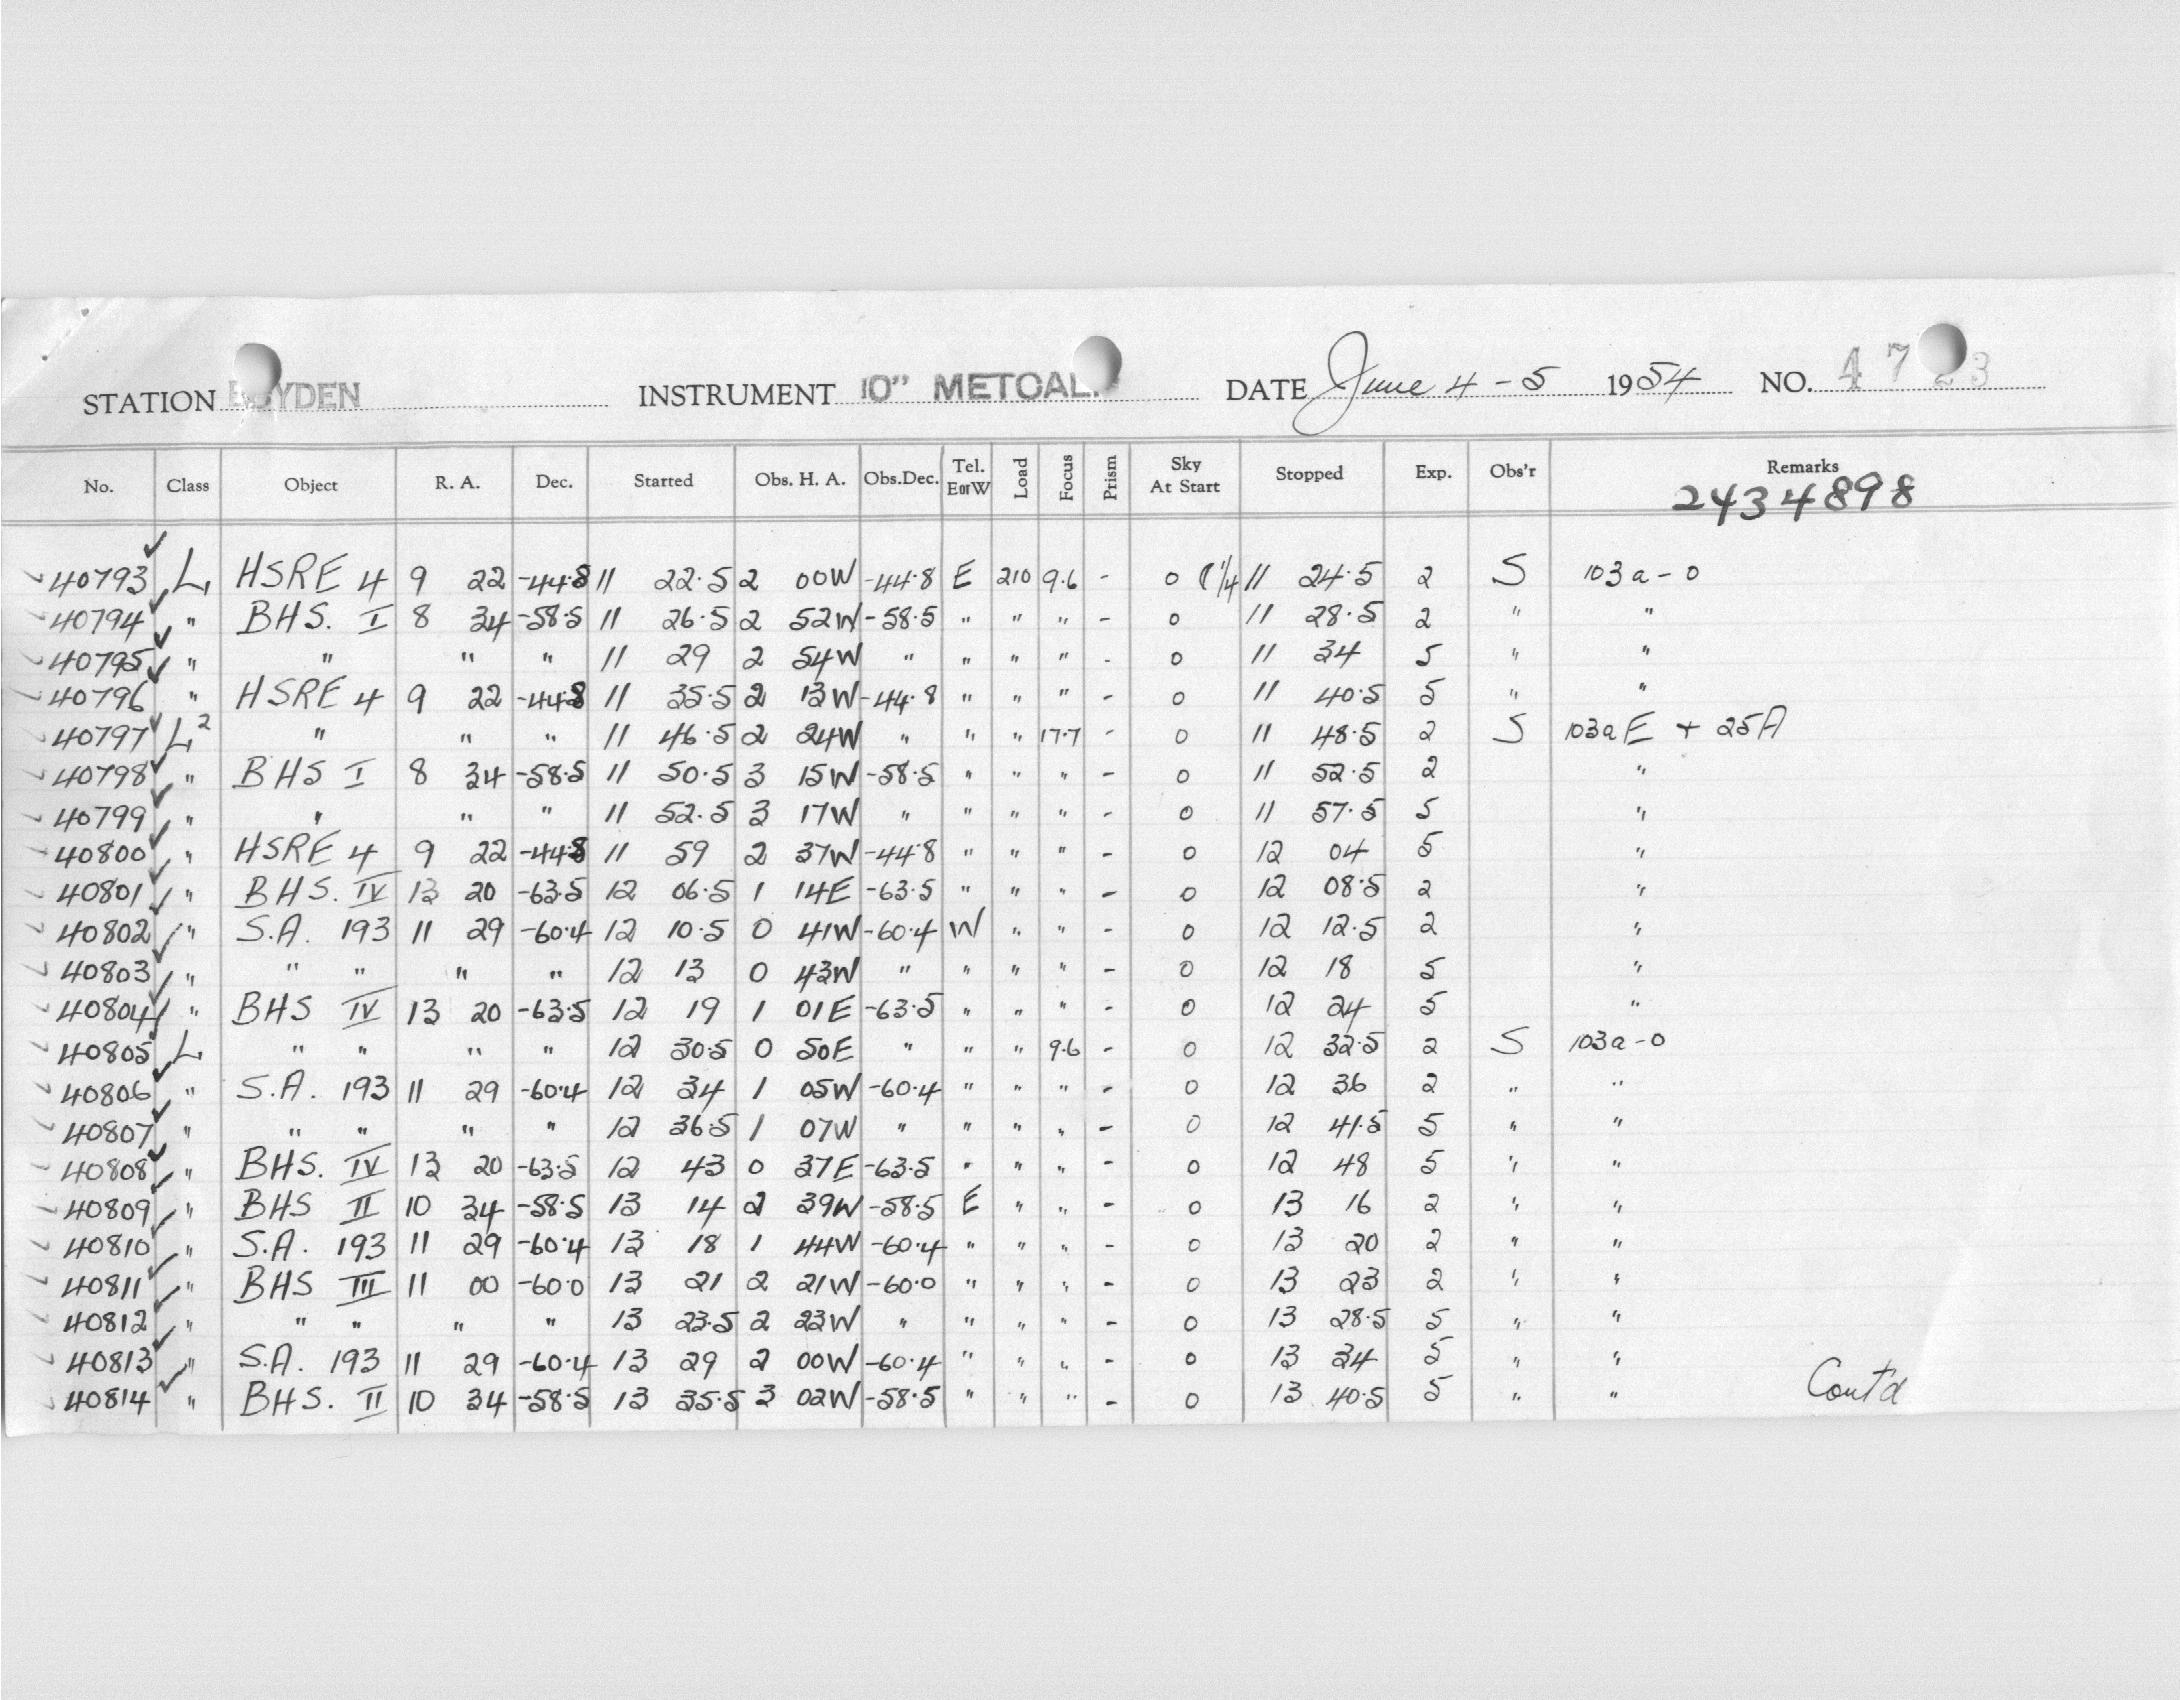 STATION BOYDEN INSTRUMENT 10" METCAL. DATE June 4-5 1954 NO. 47 23
No. Class Object R. A. Dec. Started Obs. H. A. Obs.Dec. Tel. E or W Load Focus Prism Sky At Start Stopped Exp. Obs'r Remarks
2434898
40793 L HSRE 4 9 22 -44.8 11 22.5 2 00W -44.8 E 210 9.6 - 0 1/4 11 24.5 2 S 103a-0
40794 " BHS. I 8 34 -58.5 11 26.5 2 52W -58.5 " " " - 0 11 28.5 2 " "
40795 " " " " 11 29 2 54W " " " " - 0 11 34 5 " "
40796 " HSRE 4 9 22 -44.8 11 35.5 2 13W -44.8 " " " - 0 11 40.5 5 " "
40797 L2 " " " 11 46.5 2 24W " " " 17.7 - 0 11 48.5 2 S 103aE + 25A
40798 " BHS I 8 34 -58.5 11 50.5 3 15W -58.5 " " " - 0 11 52.5 2 "
40799 " " " " 11 52.5 3 17W " " " " - 0 11 57.5 5 "
40800 " HSRE 4 9 22 -44.8 11 59 2 37W -44.8 " " " - 0 12 04 5 "
40801 " BHS. IV 13 20 -63.5 12 06.5 1 14E -63.5 " " " - 0 12 08.5 2 "
40802 " S.A. 193 11 29 -60.4 12 10.5 0 41W -60.4 W " " - 0 12 12.5 2 "
40803 " " " " " 12 13 0 43W " " " " - 0 12 18 5 "
40804 " BHS IV 13 20 -63.5 12 19 1 01E -63.5 " " " - 0 12 24 5 "
40805 L " " " " 12 30.5 0 50E " " " 9.6 - 0 12 32.5 2 S 103a-0
40806 " S.A. 193 11 29 -60.4 12 34 1 05W -60.4 " " " - 0 12 36 2 " "
40807 " " " " " 12 36.5 1 07W " " " " - 0 12 41.5 5 " "
40808 " BHS. IV 13 20 -63.5 12 43 0 37E -63.5 " " " - 0 12 48 5 " "
40809 " BHS II 10 34 -58.5 13 14 2 39W -58.5 E " " - 0 13 16 2 " "
40810 " S.A. 193 11 29 -60.4 13 18 1 44W -60.4 " " " - 0 13 20 2 " "
40811 " BHS III 11 00 -60.0 13 21 2 21W -60.0 " " " - 0 13 23 2 " "
40812 " " " " " 13 23.5 2 23W " " " " - 0 13 28.5 5 " "
40813 " S.A. 193 11 29 -60.4 13 29 2 00W -60.4 " " " - 0 13 34 5 " "
40814 " BHS. II 10 34 -58.5 13 35.5 3 02W -58.5 " " " - 0 13 40.5 5 " " Cont'd